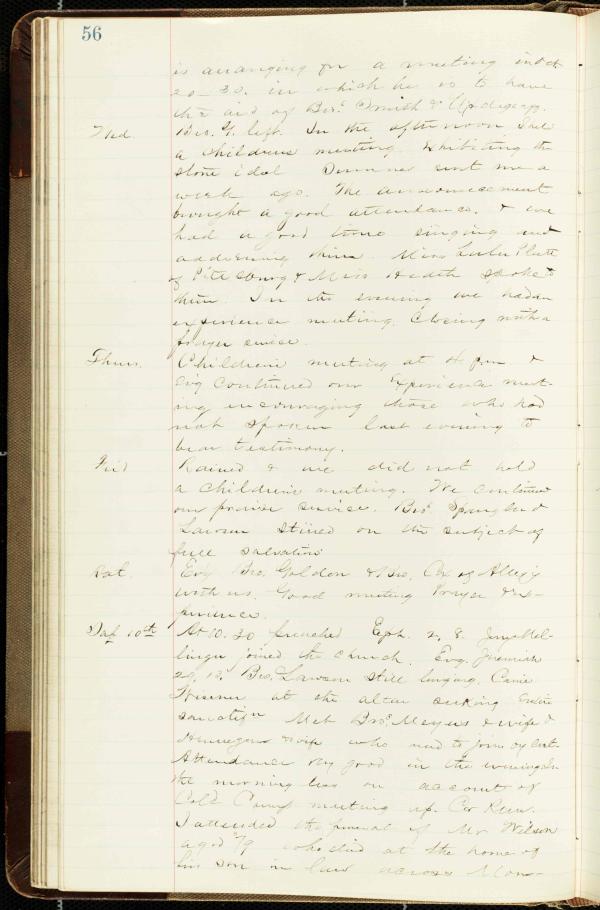 56
is arranging for a meeting
20-30. in which he is to have
the aid of Bros. Smith & Updegraff.
Wed. Bro. G. left. In the afternoon I held
a children's meeting. Exhibiting the
stone idol sent me a
week ago. The announcement
brought a good attendance. & we
had a good time singing and
addressing them. Miss Lulu Platt
of Pittsburg & Miss Heath spoke to
them. In the evening we had an
experience meeting. Closing with a
prayer service.
Thurs. Children's meeting at 4 pm &
evg continued our Experience meet-
ing encouraging those who had
not spoken last evening to
bear testimony.
Frid Rained & we did not hold
a children's meeting. We continued
our praise service. Bros. Spangler &
Lawson stirred on the subject of
full salvation
Sat. Evg Bro. Goldon & Bro. Cox of Alleg'y
with us. Good meeting Prayer & ex-
perience.
Sab 10th At 10.30 preached Eph. 2, 8.
joined the church. Evg. Jeremiah
29, 13. Bro. Lawson still lingering. Carrie
at the altar seeking Entire
sanctifn Met Bros. Meyers & wife &
& wife who need to join by cert.
Attendance very good in the evening In
the morning less on account of
Cold Camp meeting up.
I attended the funeral of Mr. Wilson
aged 79 who died at the home of
his son in law across Mon-